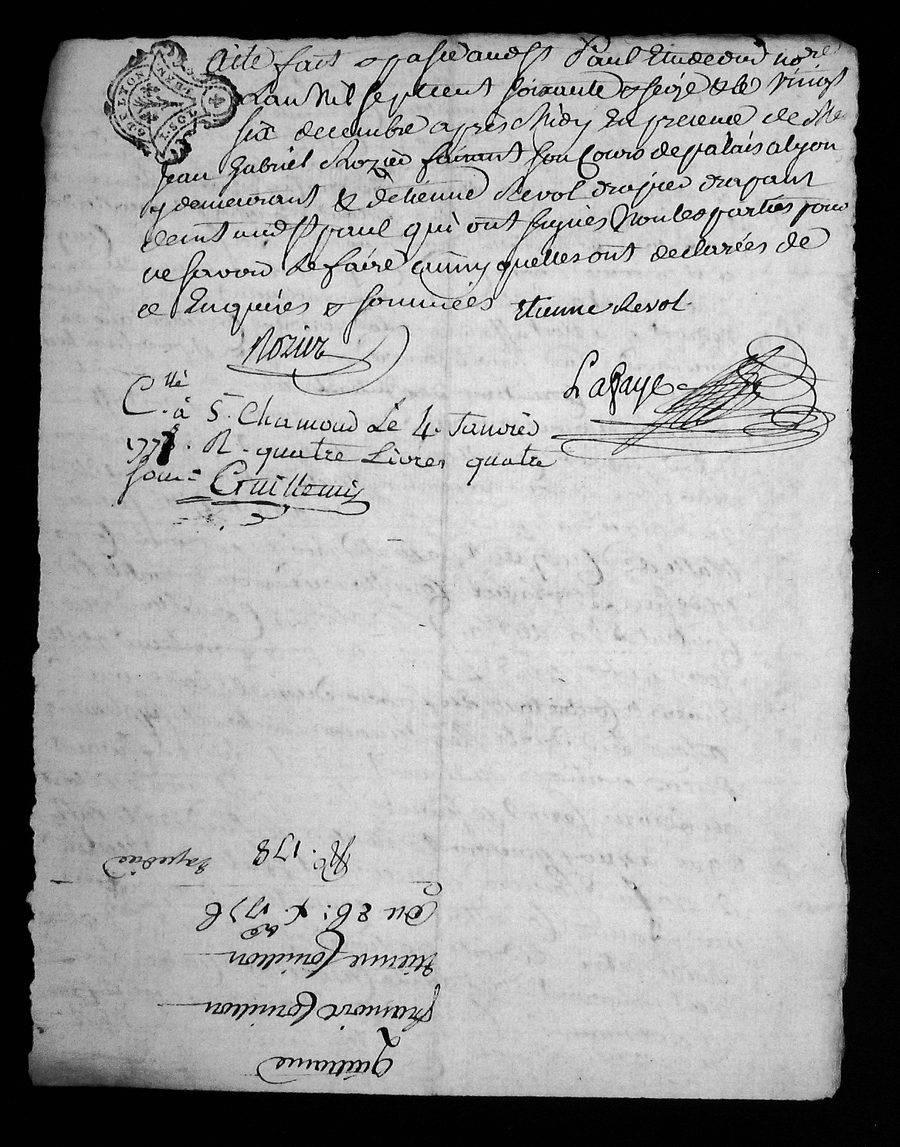 acte fait & passé aud St Paul Etude dud no.re
Lan Mil sept cent soixante & seize & le vingt
six decembre apres Midy En presence de Me
jean Gabriel Rozier faisant son Cours de palais a lyon
y demeurant & detienne Revol drapier drapant
de st paul qui ont signés Non les parties pour
ne savoir Le faire ainsy quelles ont declarées de
ce Enquises & sommées Etienne Revol
Rozier
Lafaye
C.llé à S. Chamond Le 4. Janvier
1777. R. quatre Livres quatre
sous Guillemin
GDE LYON
1.SOL
Quittance
francois Cornillon
Etienne Cornillon
Du 26: Xbre 1776
No. 178
Expediée